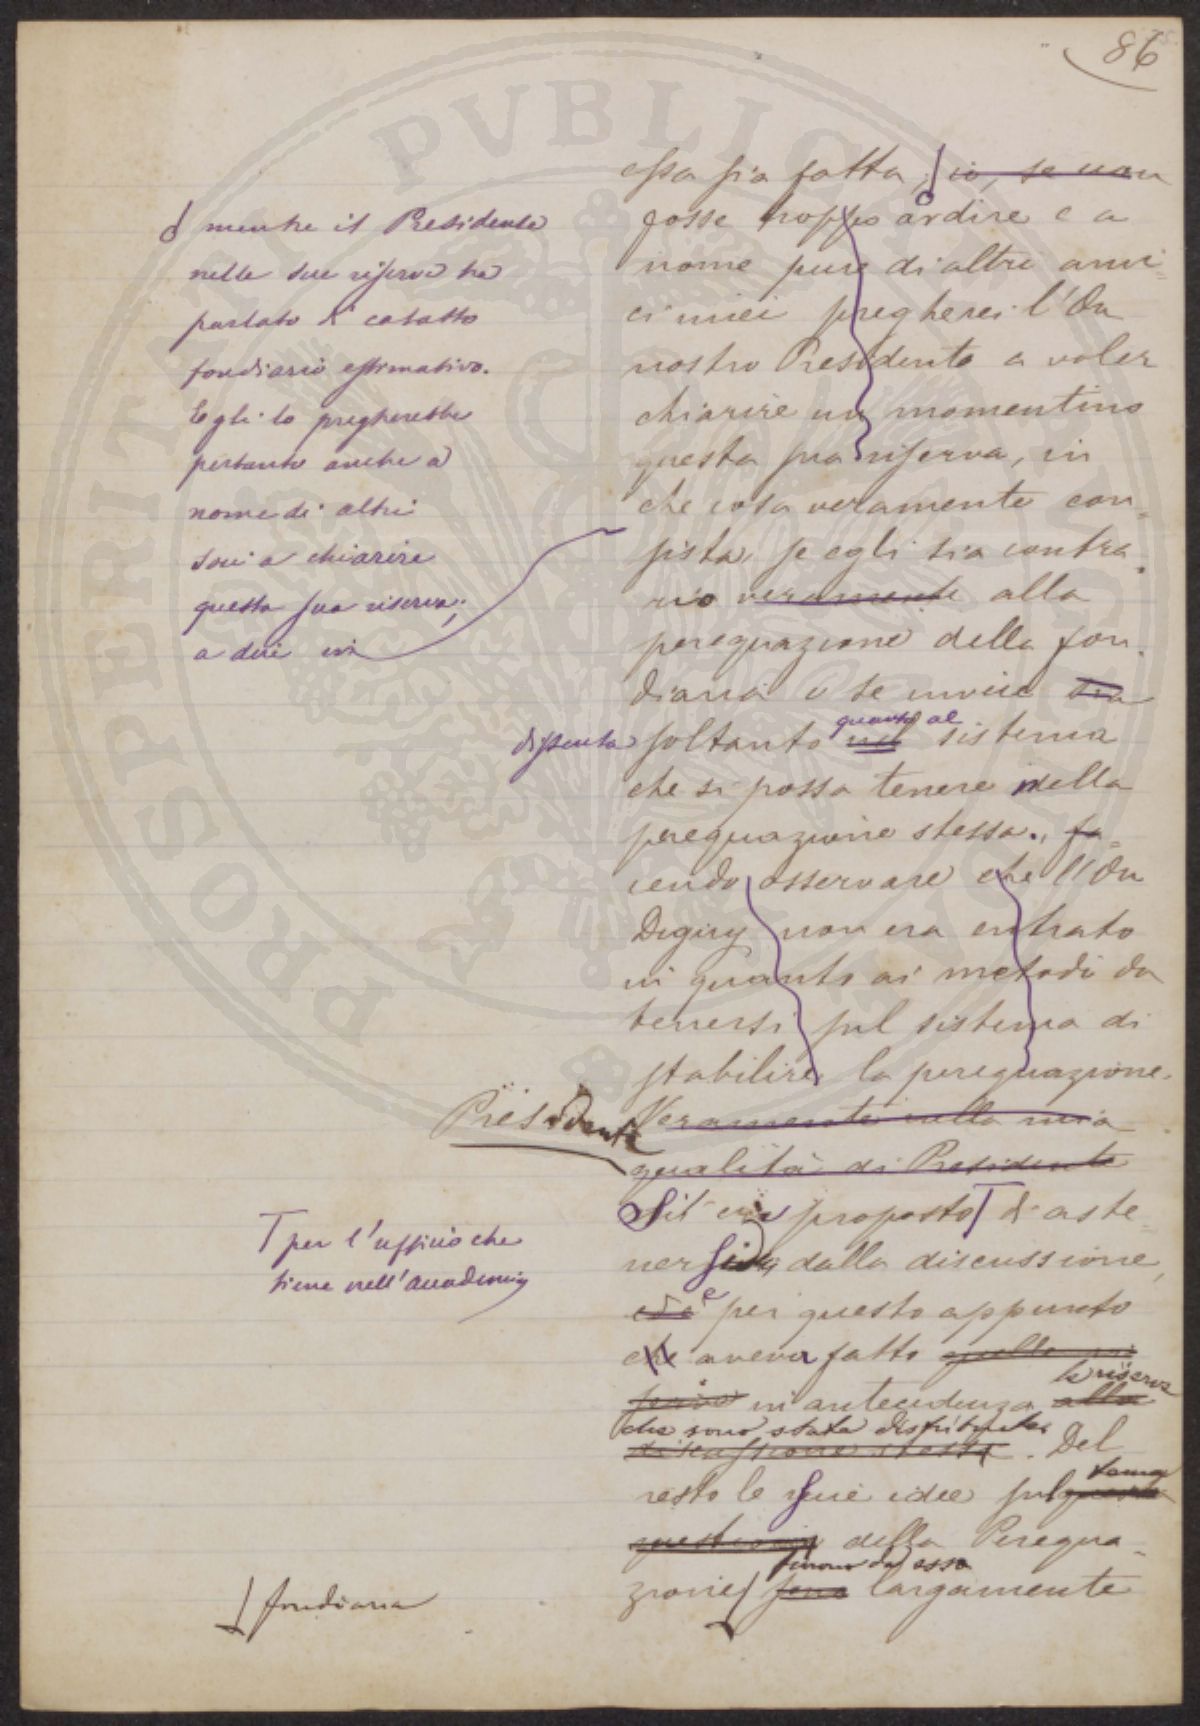 86
essa sia fatta, io, se non
fosse troppo ardire e a
nome pure di altri ami=
ci miei pregherei l'On
nostro Presidente a voler
chiarire un momentino
questa sua riserva, in
che cosa veramente con=
sista, se egli sia contra=
rio veramente alla
perequazione della fon=
diaria o se invece sia
dissenta soltanto nel quanto al sistema
che si possa tenere della
perequazione stessa., fa=
cendo osservare che l'On
Digny non era entrato
in quanto ai metodi da
tenersi sul sistema di
stabilire la perequazione.
Presidente Veramente nella mia
qualità di Presidente
Si era proposto di aste=
nersi dalla discussione,
ed è e per questo appunto
che aveva fatto quelle mi
in antecedenza alla le riserve
che sono state distribuite
discussione stessa. Del
resto le sue idee sul questa tema
questione della Perequa=
zione sono furono da esso largamente
mentre il Presidente
nelle sue riserve ha
parlato di catasto
fondiario estimativo.
Egli lo pregherebbe
pertanto anche a
nome di altri
soci a chiarire
questa sua riserva;
a dire in
per l'ufficio che
tiene nell'Accademia
fondiaria
PROSPERITATI PUBLICAE